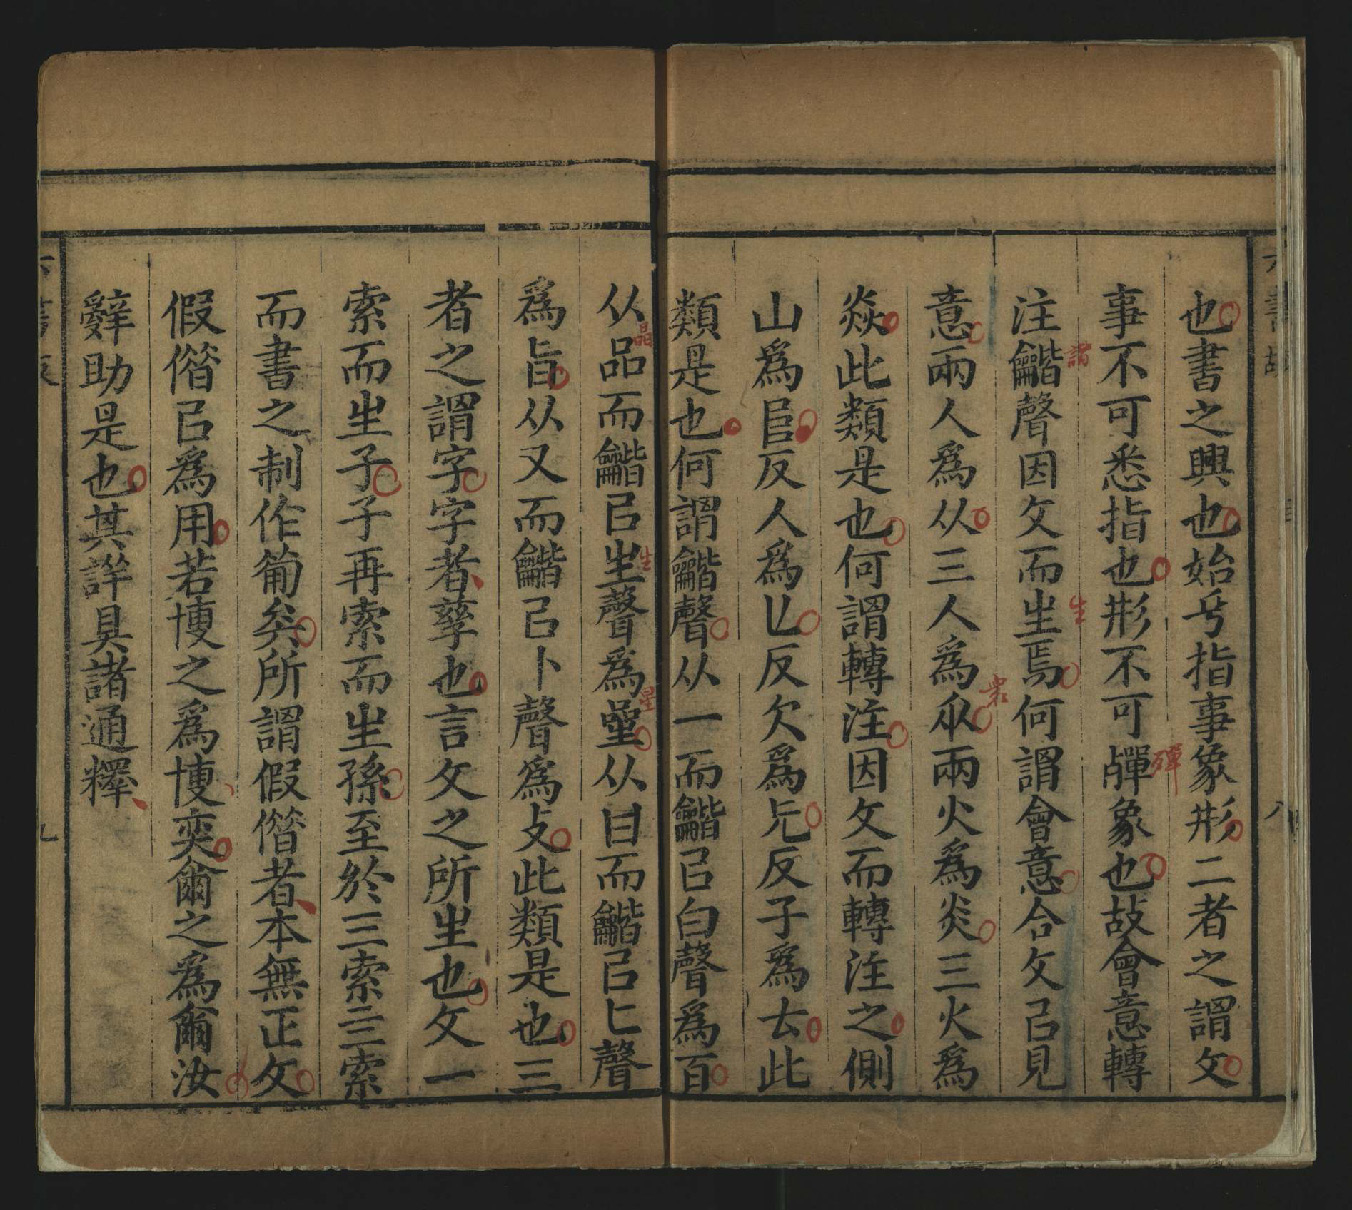 也書之興也始於指事象形二者之謂文
事不可悉指也形不可殫象也故會意轉
注龤聲因文而生焉何謂會意合文㠯見
意兩人爲从三人爲㐺兩火爲炎三火爲
焱此類是也何謂轉注因文而轉注之側
山爲𨸏反人爲匕反欠爲旡反子爲𠫓此
類是也何謂龤聲从一而龤㠯白聲爲百
从晶而龤㠯生聲爲曐从甘而龤㠯匕聲
爲旨从又而龤㠯卜聲爲攴此類是也三
者之謂字字者孳也言文之所生也文一
索而生子子再索而生孫至於三索三索
而書之制作𤰈矣所謂假借者本無正文
假借㠯爲用若博之爲博奕爾之爲爾汝
辤助是也其詳具諸通釋
六書故
八
九
謂
生
眾
殫
晶
生
星